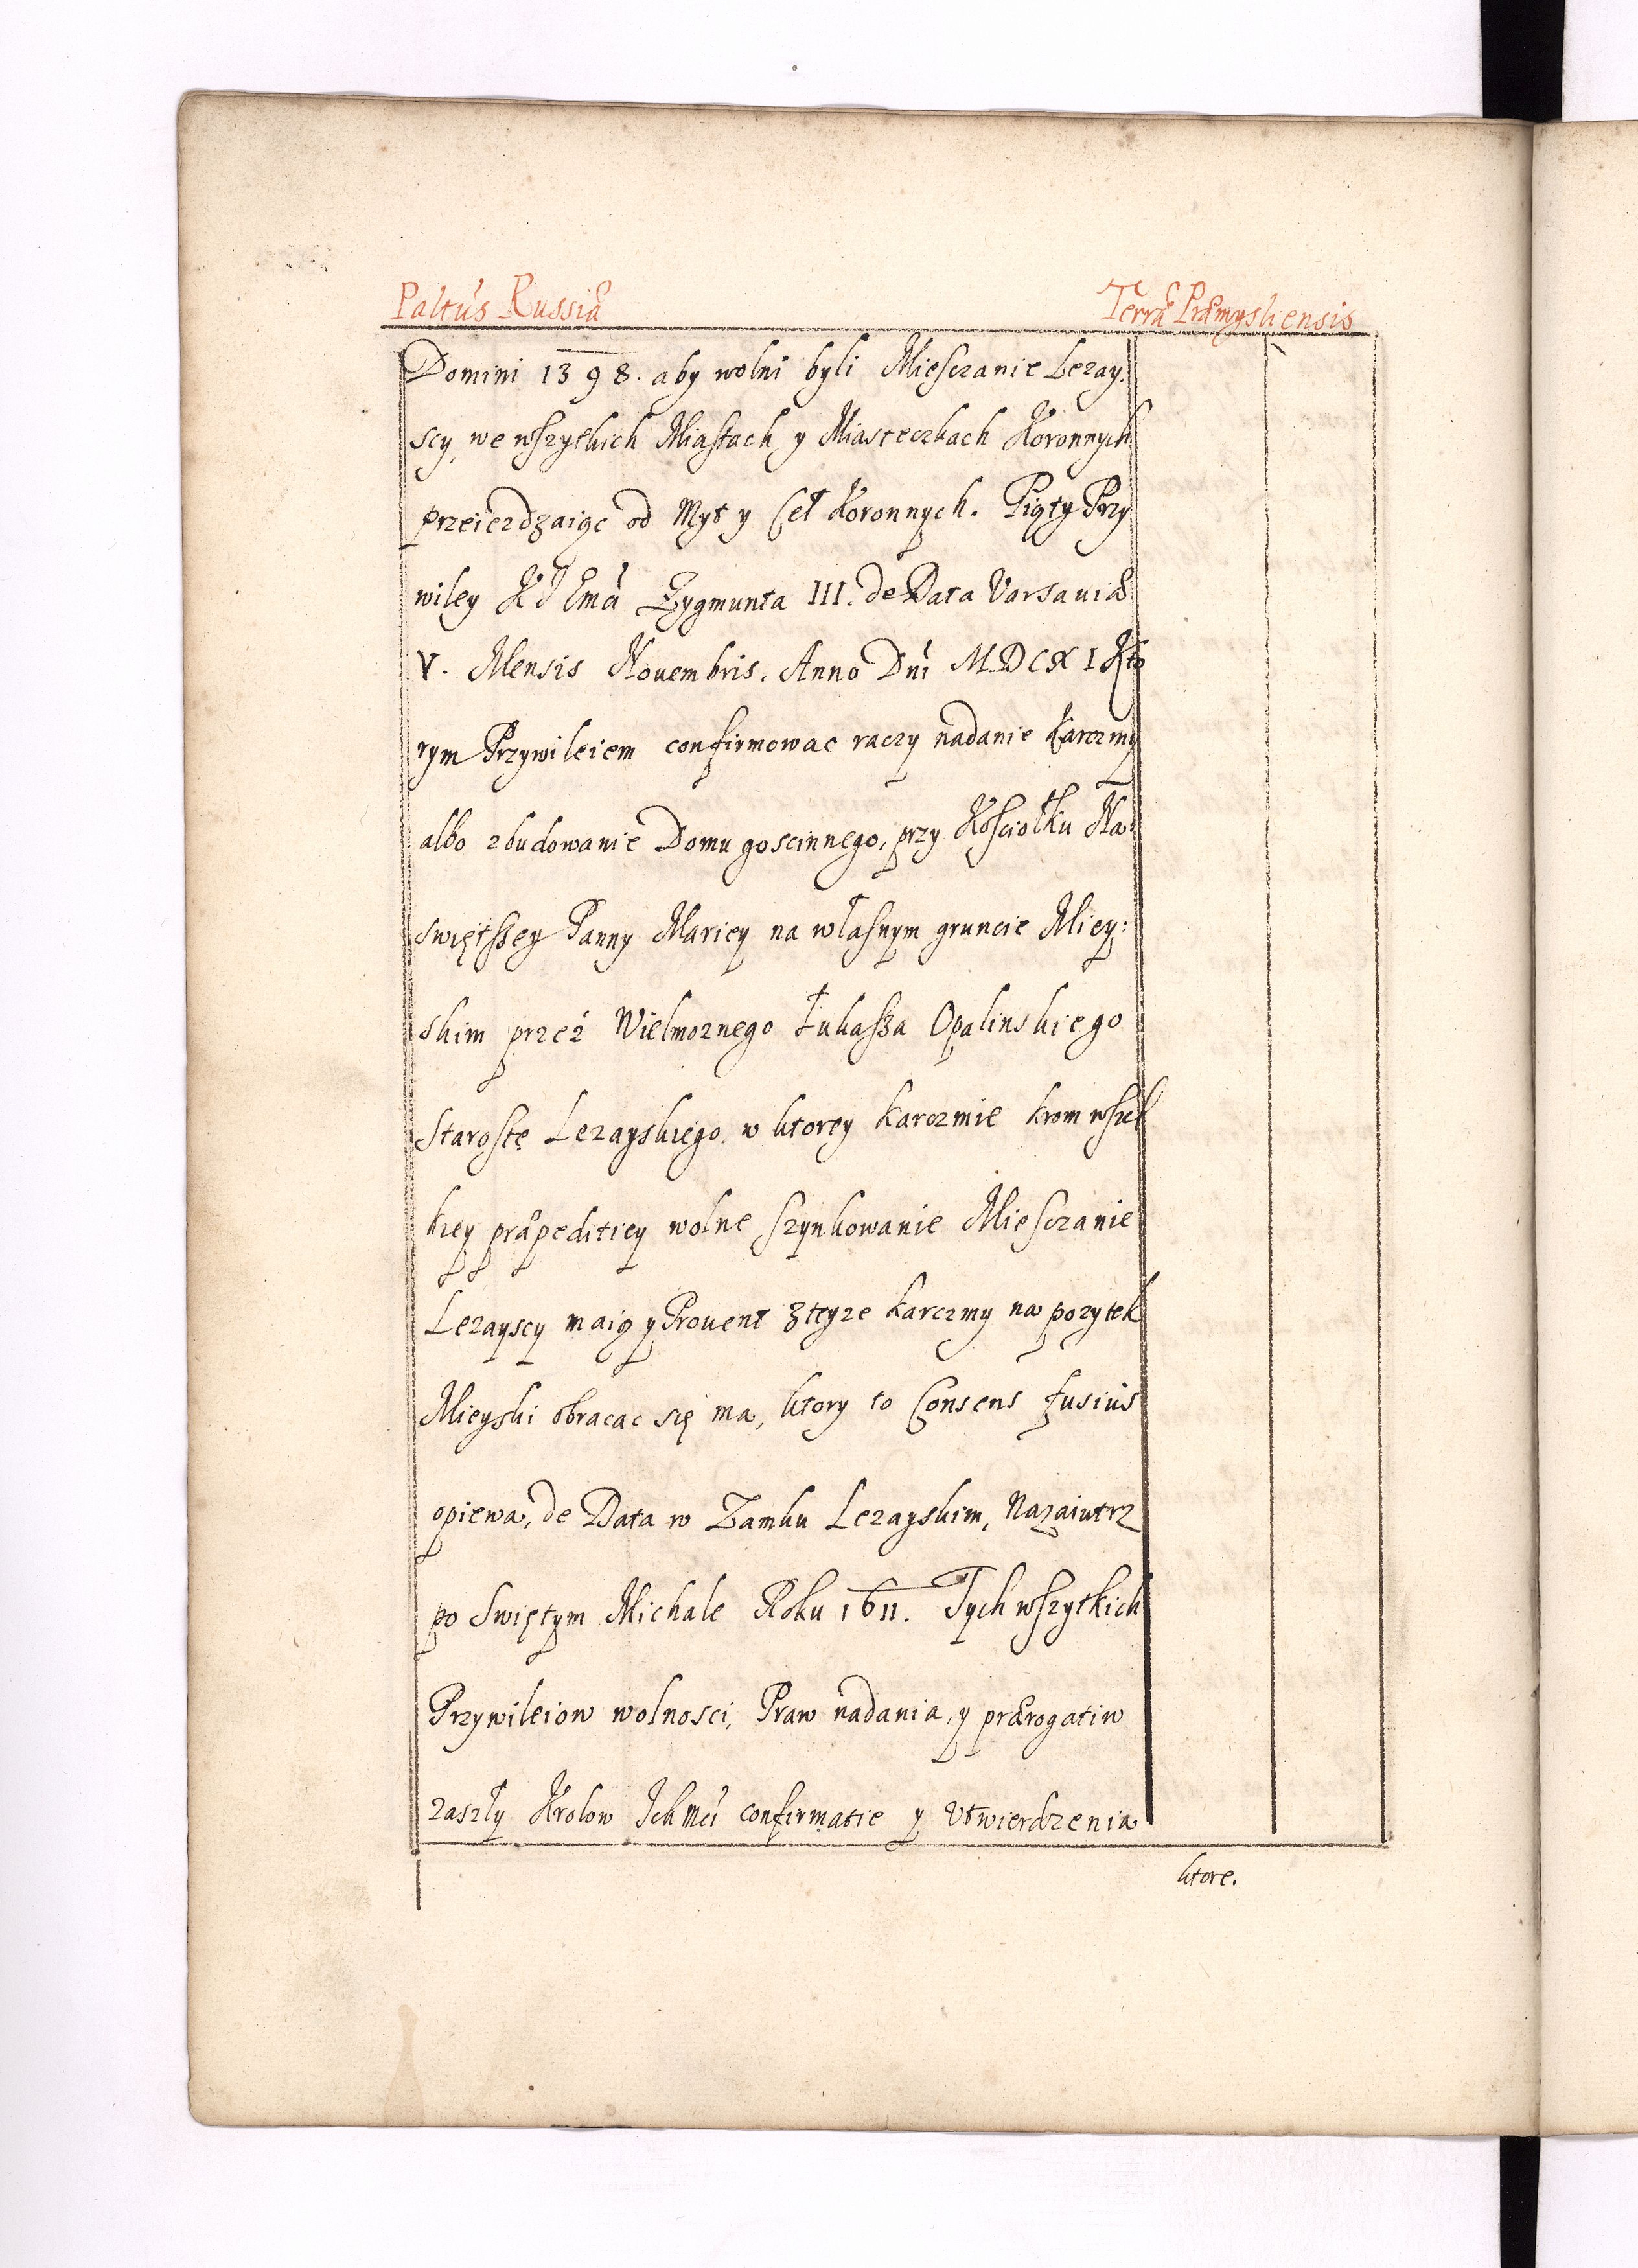 Paltus Russiæ
Terræ Præmysliensis
Domini 1398. aby wolni byli Miesczanie Lezay.
scy, we wszytkich Miastach y Miasteczkach Koronnych
przeiezdzaiąc od Myt y Ceł Koronnych. Piąty Przy
wiley K J Emci Zygmunta III. de Data Varsauiæ
V. Mensis Nouembris. Anno Dni MDCXI Kto
rym Przywileiem confirmowac raczy nadanie karczmy
albo zbudowanie Domu goscinnego, przy Kościołku Na:
swiętszey Panny Mariey na własnym gruncie Miey:
skim przez Wielmoznego Łukasza Opalinskiego
Starostę Lezayskiego. w ktorey karczmie krom wszel
kiey præpeditiey wolne szynkowanie Miesczanie
Lezayscy maią y Prouent zteyze karczmy na pozytek
Mieyski obracac się ma, ktory to Consens fusius
opiewa, de Data w Zamku Lezayskim, Nazaiutrz
po Swiętym Michale Roku 1611. Tych wszytkich
Przywileiow wolnosci, Praw nadania, y prærogatiw
zaszły Krolow Ichmci confirmatie y Utwierdzenia
ktore.